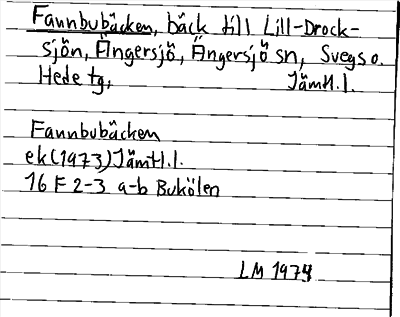 Fannbubäcken, bäck till Lill-Drock-
sjön, Ängersjö, Ängersjö sn, Svegs o.
Hede tg, Jämtl.l.
Fannbubäcken
ek(1973)Jämtl.l.
16 F 2-3 a-b Bukölen
LM 1974